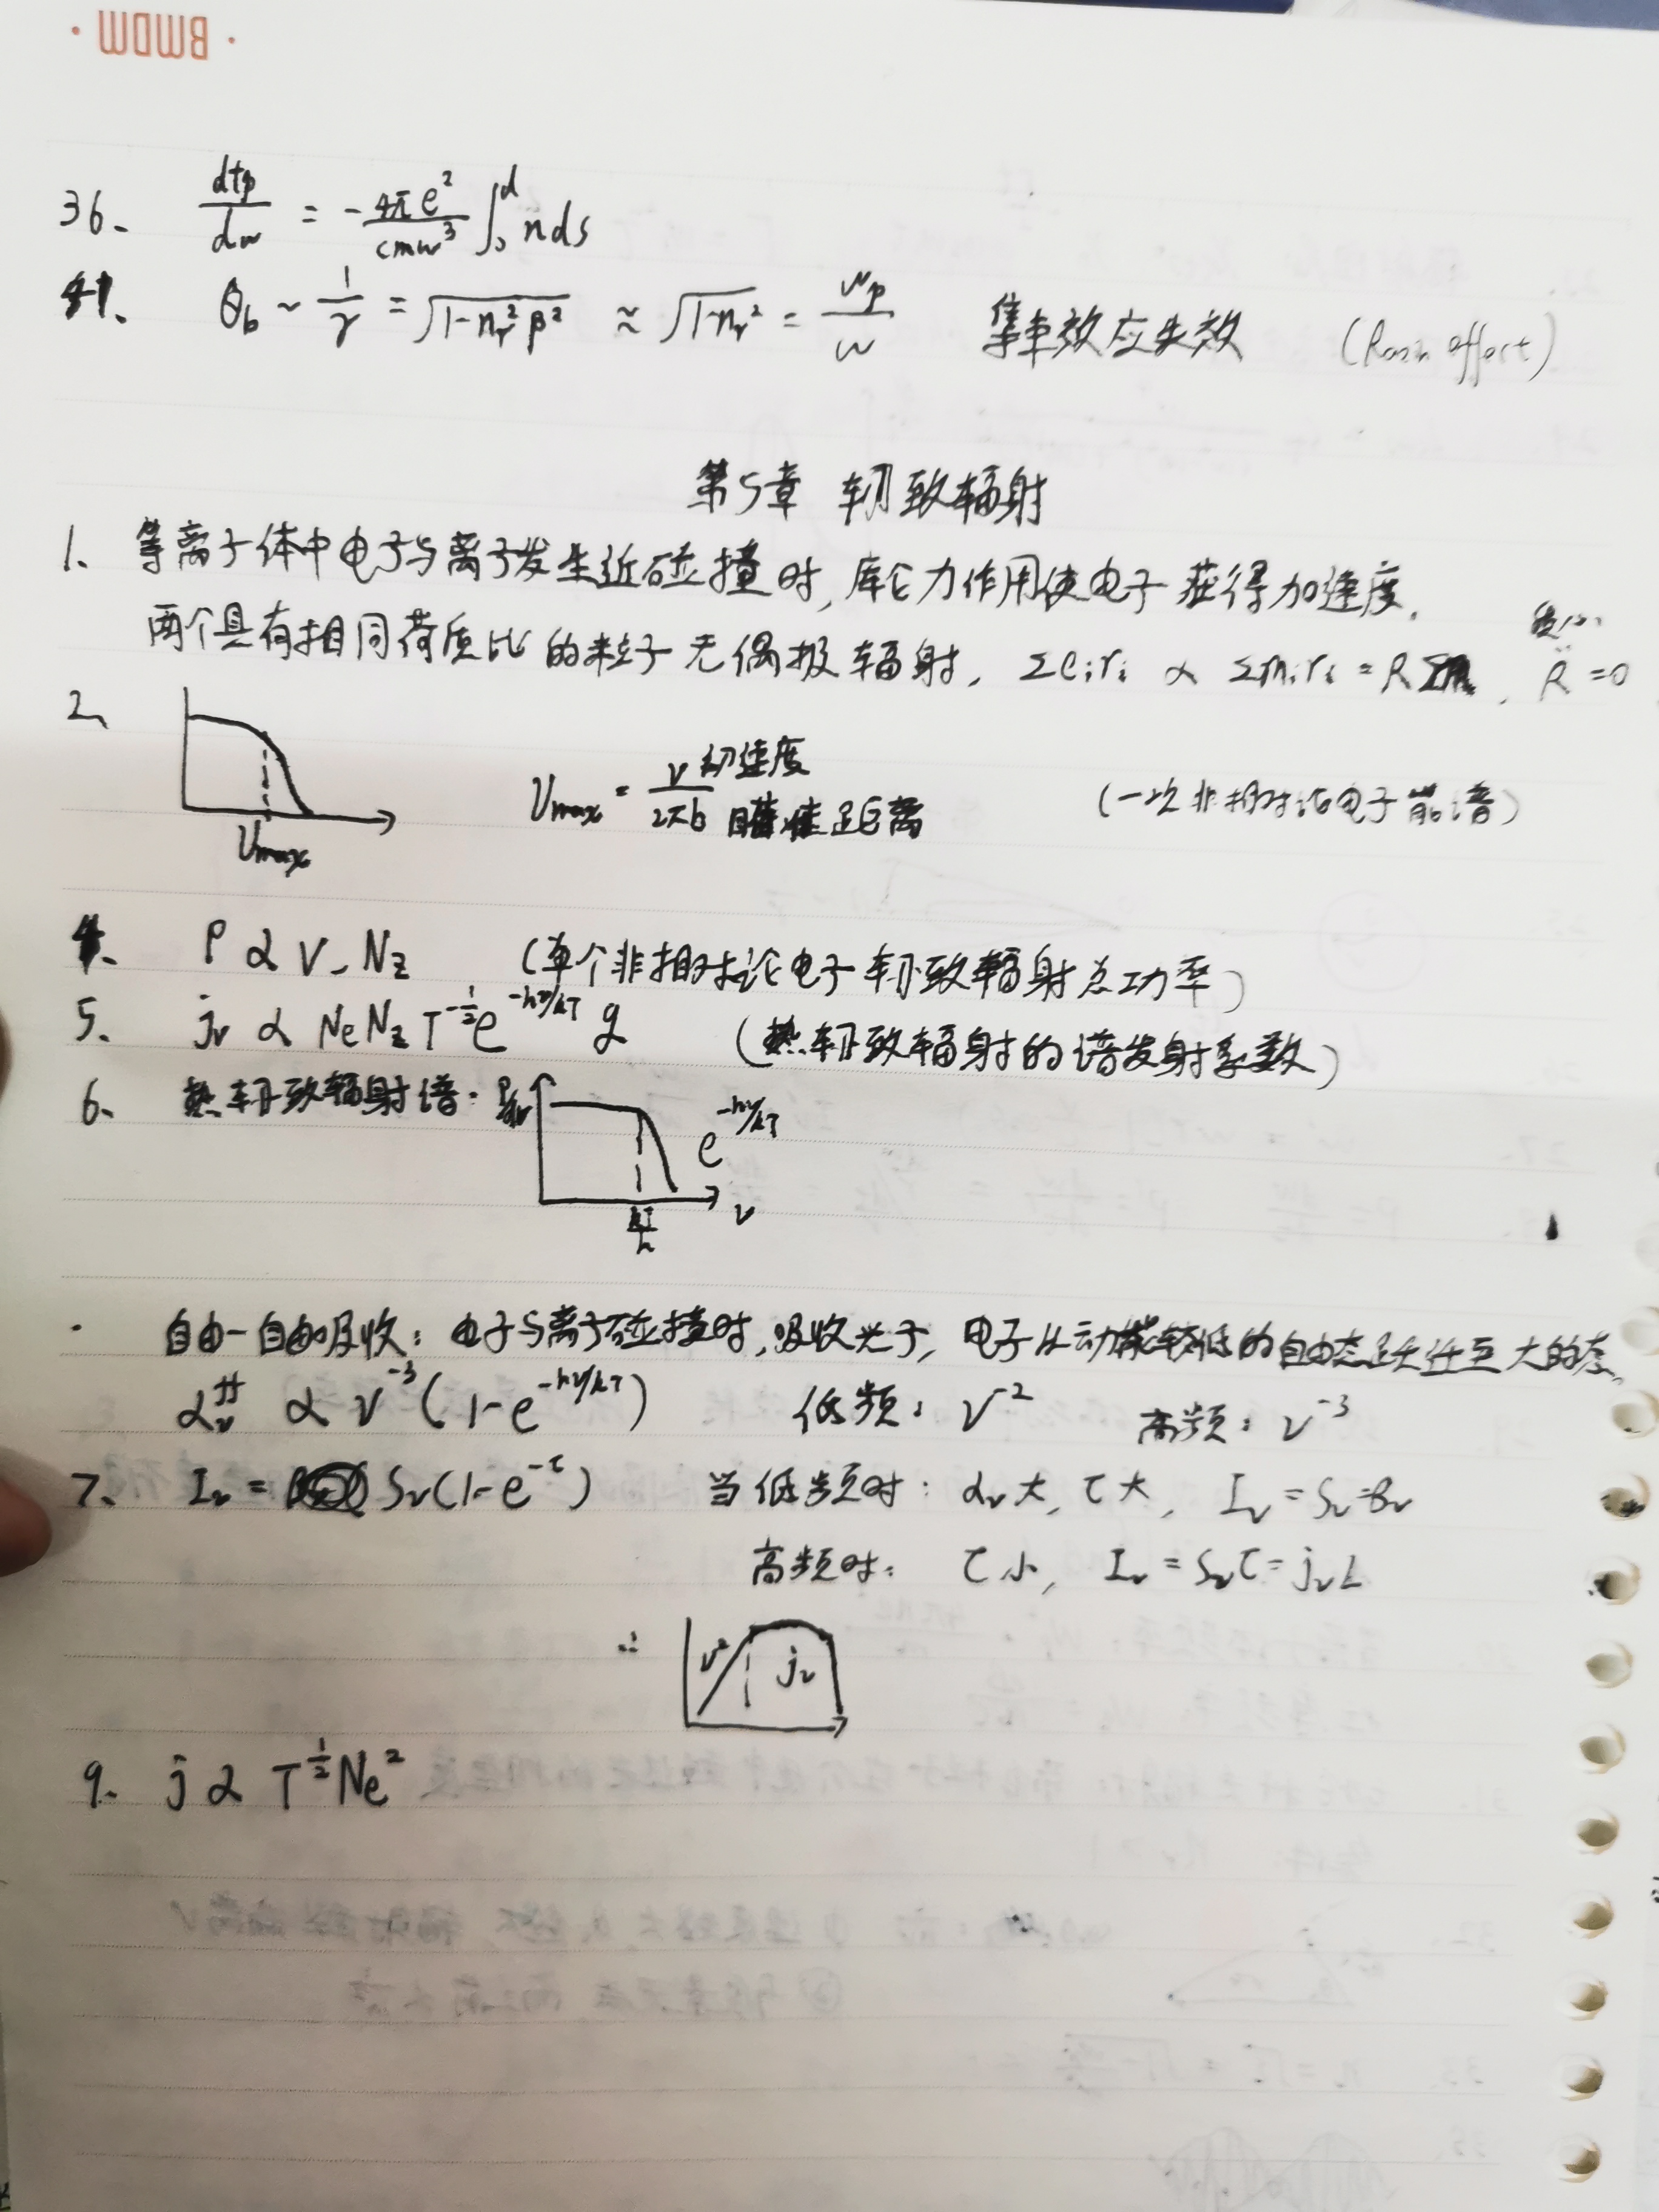 BMDM
36、 dtp/dw = -4πe²/cmw³ ∫₀ᵈ nds
41、 θb ~ 1/γ = √(1-nr²β²) ≈ √(1-nr²) = wp/w 集束效应失效 (Razin effect)
第5章 轫致辐射
1、等离子体中电子与离子发生近碰撞时,库仑力作用使电子获得加速度.
两个具有相同荷质比的粒子无偶极辐射, Σeiri ∝ Σmiri = RΣm, R̈ = 0
2、 νmax = v/2πb 初速度 瞄准距离 (一次非相对论电子能谱)
νmax
4、 P ∝ v, Nz (单个非相对论电子轫致辐射总功率)
5、 jν ∝ NeNzT^(-1/2)e^(-hν/kT) g (热轫致辐射的谱发射系数)
6、 热轫致辐射谱: Pν e^(-hν/kT)
kT/h ν
· 自由-自由吸收: 电子与离子碰撞时,吸收光子, 电子从动能较低的自由态跃迁至大的态.
αν^ff ∝ ν⁻³(1-e^(-hν/kT)) 低频: ν⁻² 高频: ν⁻³
7、 Iν = Sν(1-e^(-τ)) 当低频时: αν大, τ大, Iν = Sν=Bν
高频时: τ小, Iν = Sντ = jνL
∴ ν² jν
9. j ∝ T^(1/2)Ne²